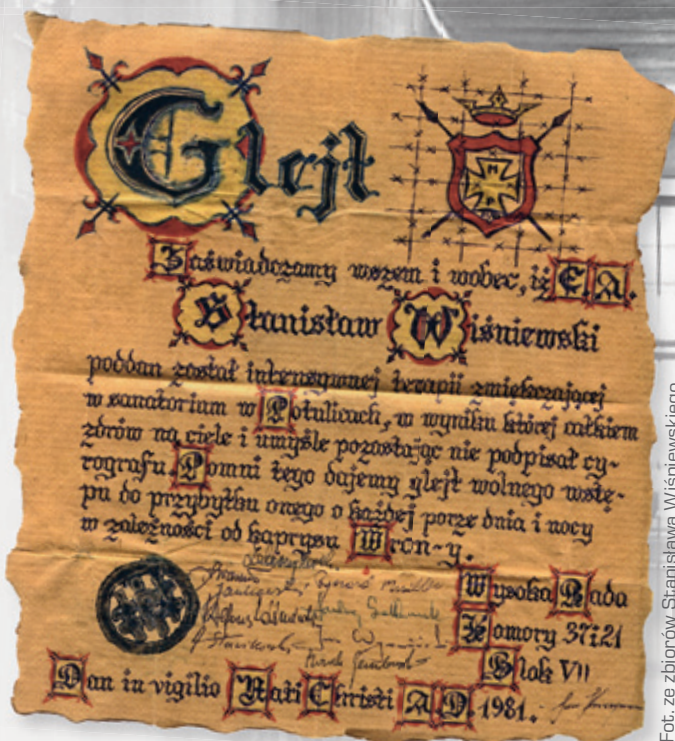 Glejt
Zaświadczamy wszem i wobec, iż E.A.
Stanisław Wiśniewski
poddan został intensywnej terapii zmiękczającej
w sanatorium w Potulicach, w wyniku której całkiem
zdrów na ciele i umyśle pozostając nie podpisał cy-
rografu. Pomni tego dajemy glejt wolnego wstę-
pu do przybytku onego o każdej porze dnia i nocy
w zależności od kaprysu Wron-y.
Wysoka Rada
Komory 37i21
Blok VII
Dan in vigilio Nati Christi A.D. 1981.
Fot. ze zbiorów Stanisława Wiśniewskiego